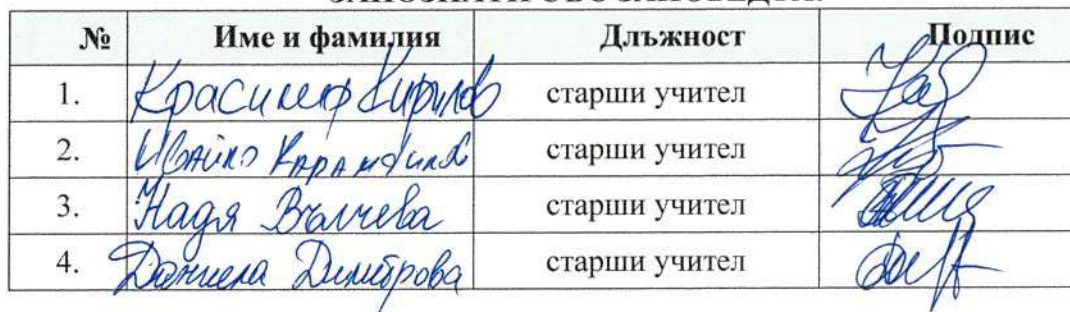 № Име и фамилия Длъжност Подпис
1. Красимир Кирилов старши учител
2. Ивайло старши учител
3. Надя Вълчева старши учител
4. Даниела Димитрова старши учител